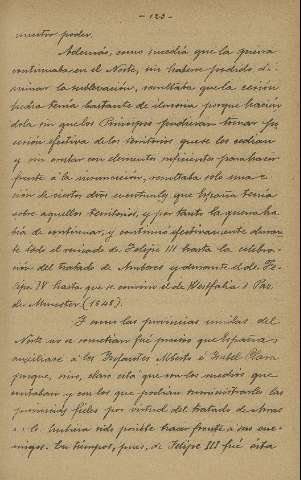 - 123 -
nuestro poder.
Además, como sucedía que la guerra
continuaba en el Norte, sin haberse podido do-
minar la sublevación, resultaba que la cesión
hecha tenía bastante de ilusoria porque hacien
dola sin que los Príncipes pudieran tomar po
sesión efectiva de los territorios que se les cedían
y sin contar con elementos suficientes para hacer
frente á la insurrección, resultaba solo una ce
sión de ciertos dros eventuales que España tenía
sobre aquellos territorios, y por tanto la guerra ha
bía de continuar, y continuó efectivamente duran
te todo el reinado de Felipe III hasta la celebra-
ción del tratado de Amberes y durante el de Fe-
lipe IV hasta que se convino el de Westfalia ó Paz
de Munster (1648).
Y como las provincias unidas del
Norte no se sometían fué preciso que España
auxiliase á los Infantes Alberto é Isabel Clara
porque, sino, claro está que con los medios que
contaban y con los que podían suministrarles las
provincias fieles por virtud del tratado de Arras
no les hubiera sido posible hacer frente á sus ene-
migos. En tiempos, pues, de Felipe III fué ésta